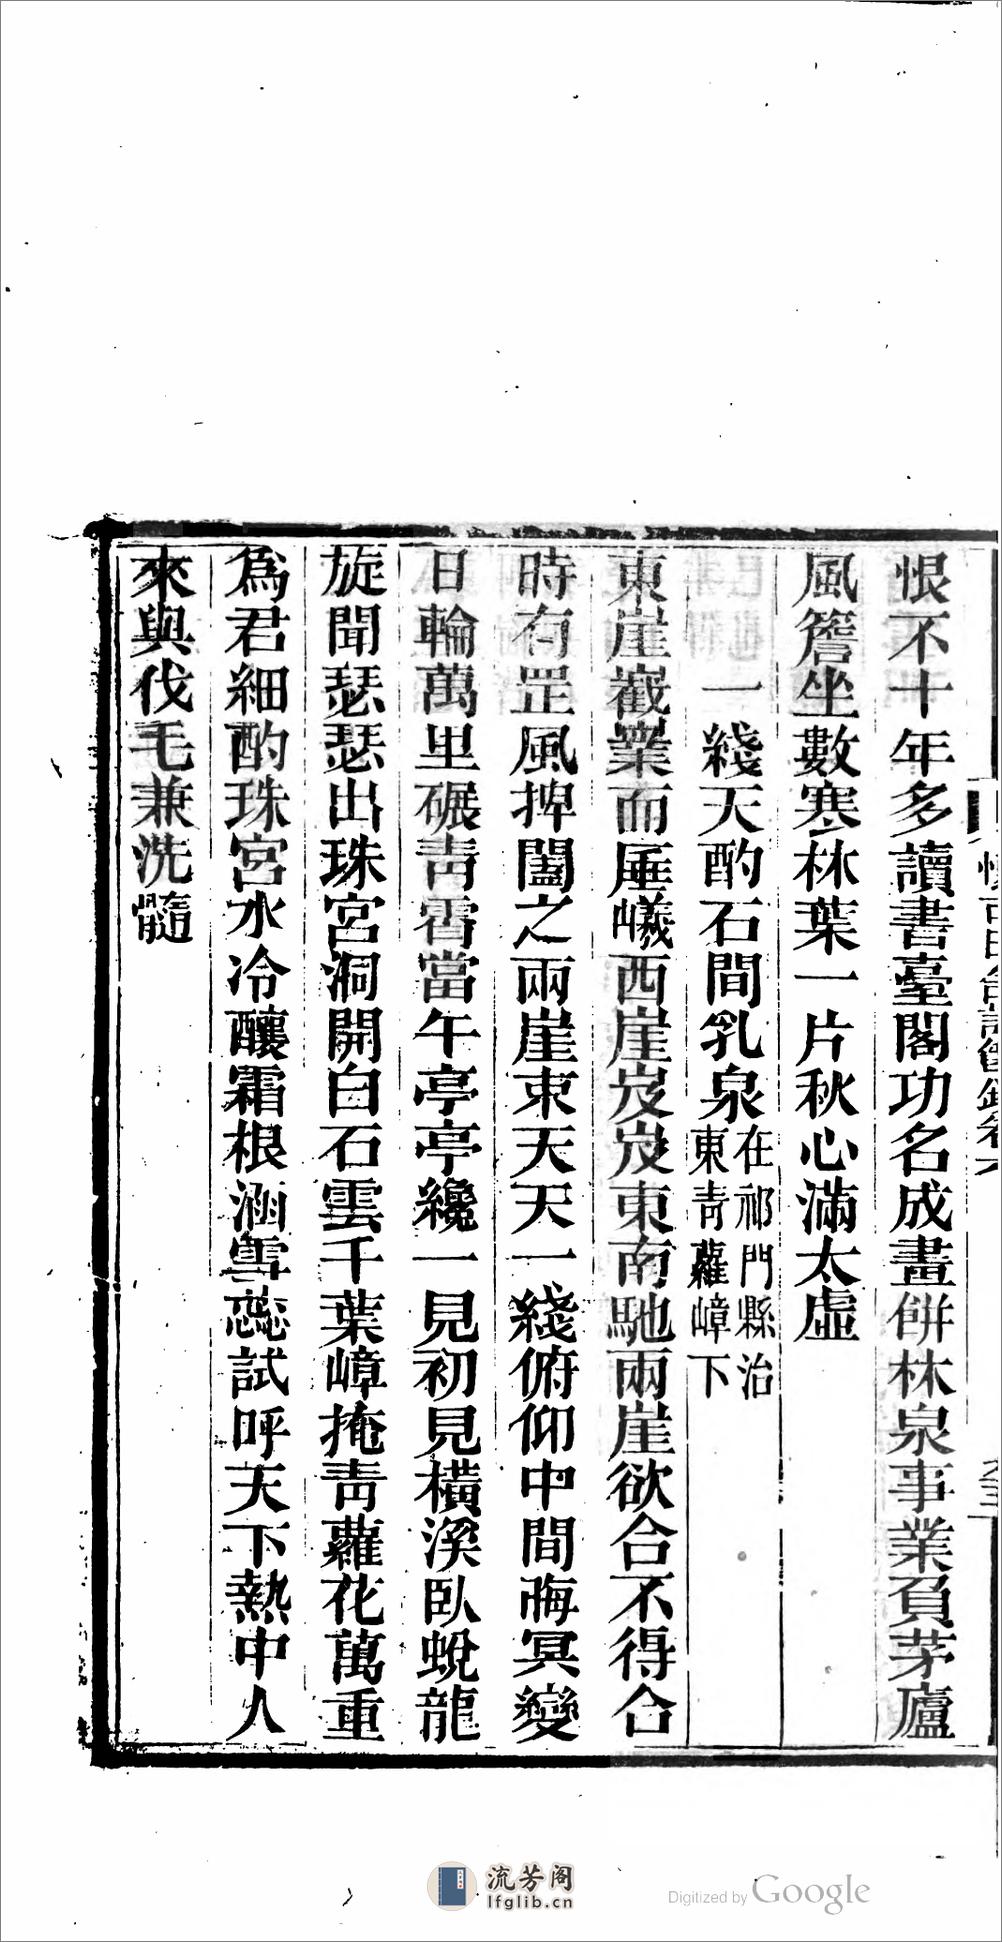 恨不十年多讀書臺閣功名成畫餅林泉事業負茅廬
風簷坐數寒林葉一片秋心滿太虛
一綫天酌石間乳泉在祁門縣治東青蘿嶂下
東崖巀嶪而厜㕒西崖岌岌東南馳兩崖欲合不得合
時有罡風捭闔之兩崖束天天一綫俯仰中間晦冥變
日輪萬里碾青霄當午亭亭纔一見初見橫溪臥蛻龍
旋聞瑟瑟出珠宮洞開白石雲千葉嶂掩青蘿花萬重
爲君細酌珠宮水冷釀霜根涵雪蕊試呼天下熱中人
來與伐毛兼洗髓
流芳阁
lfglib.cn
Digitized by Google